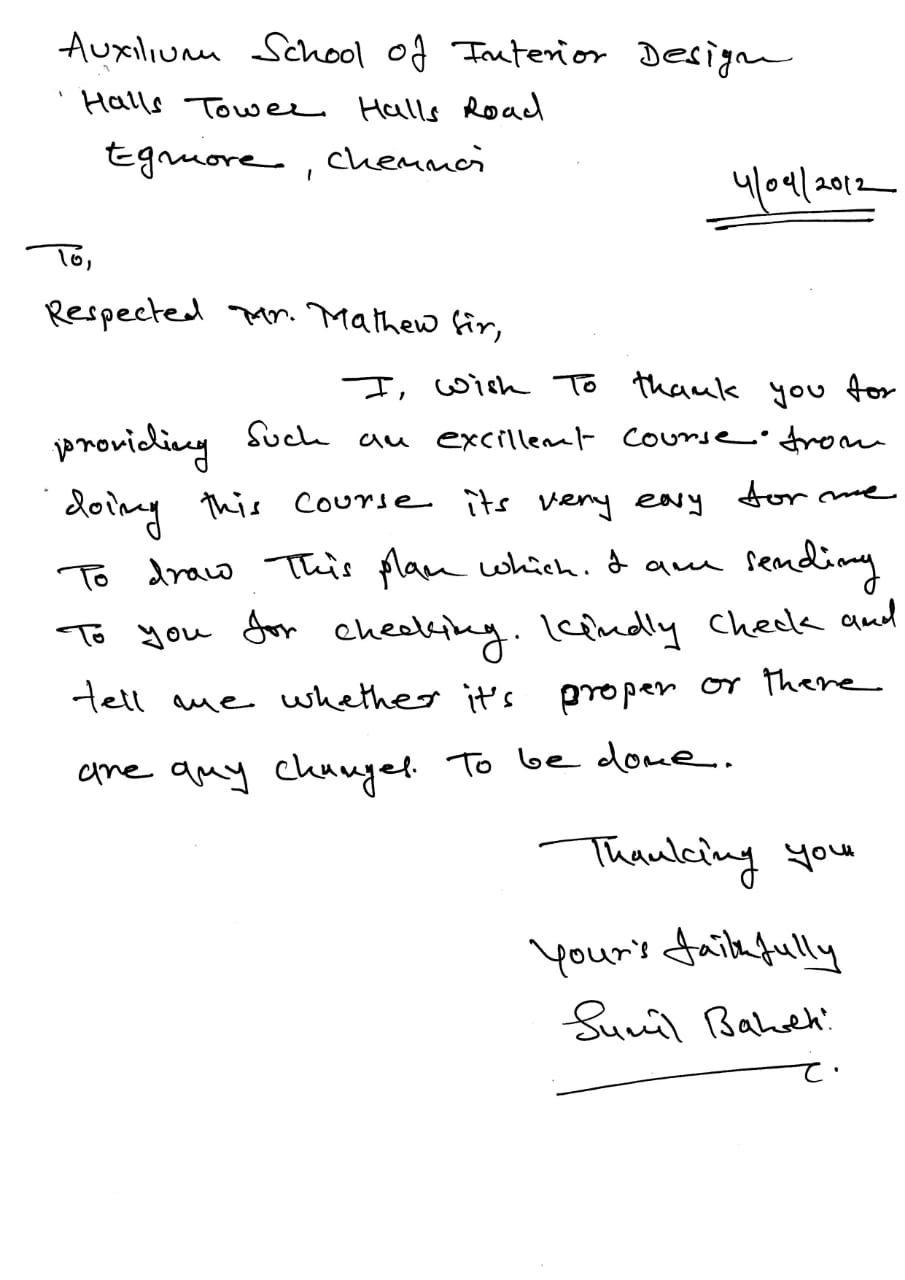 Auxilium School of Interior Design
Halls Tower Halls Road
Egmore, Chennai
4/04/2012
To,
Respected Mr. Mathew Sir,
I, wish To thank you for
providing Such an excillent course. from
doing this course its very easy for me
To draw This plan which. I am sending
To you for checking. Kindly check and
tell me whether it's proper or there
are any changes. To be done.
Thanking you
Your's faithfully
Sunil